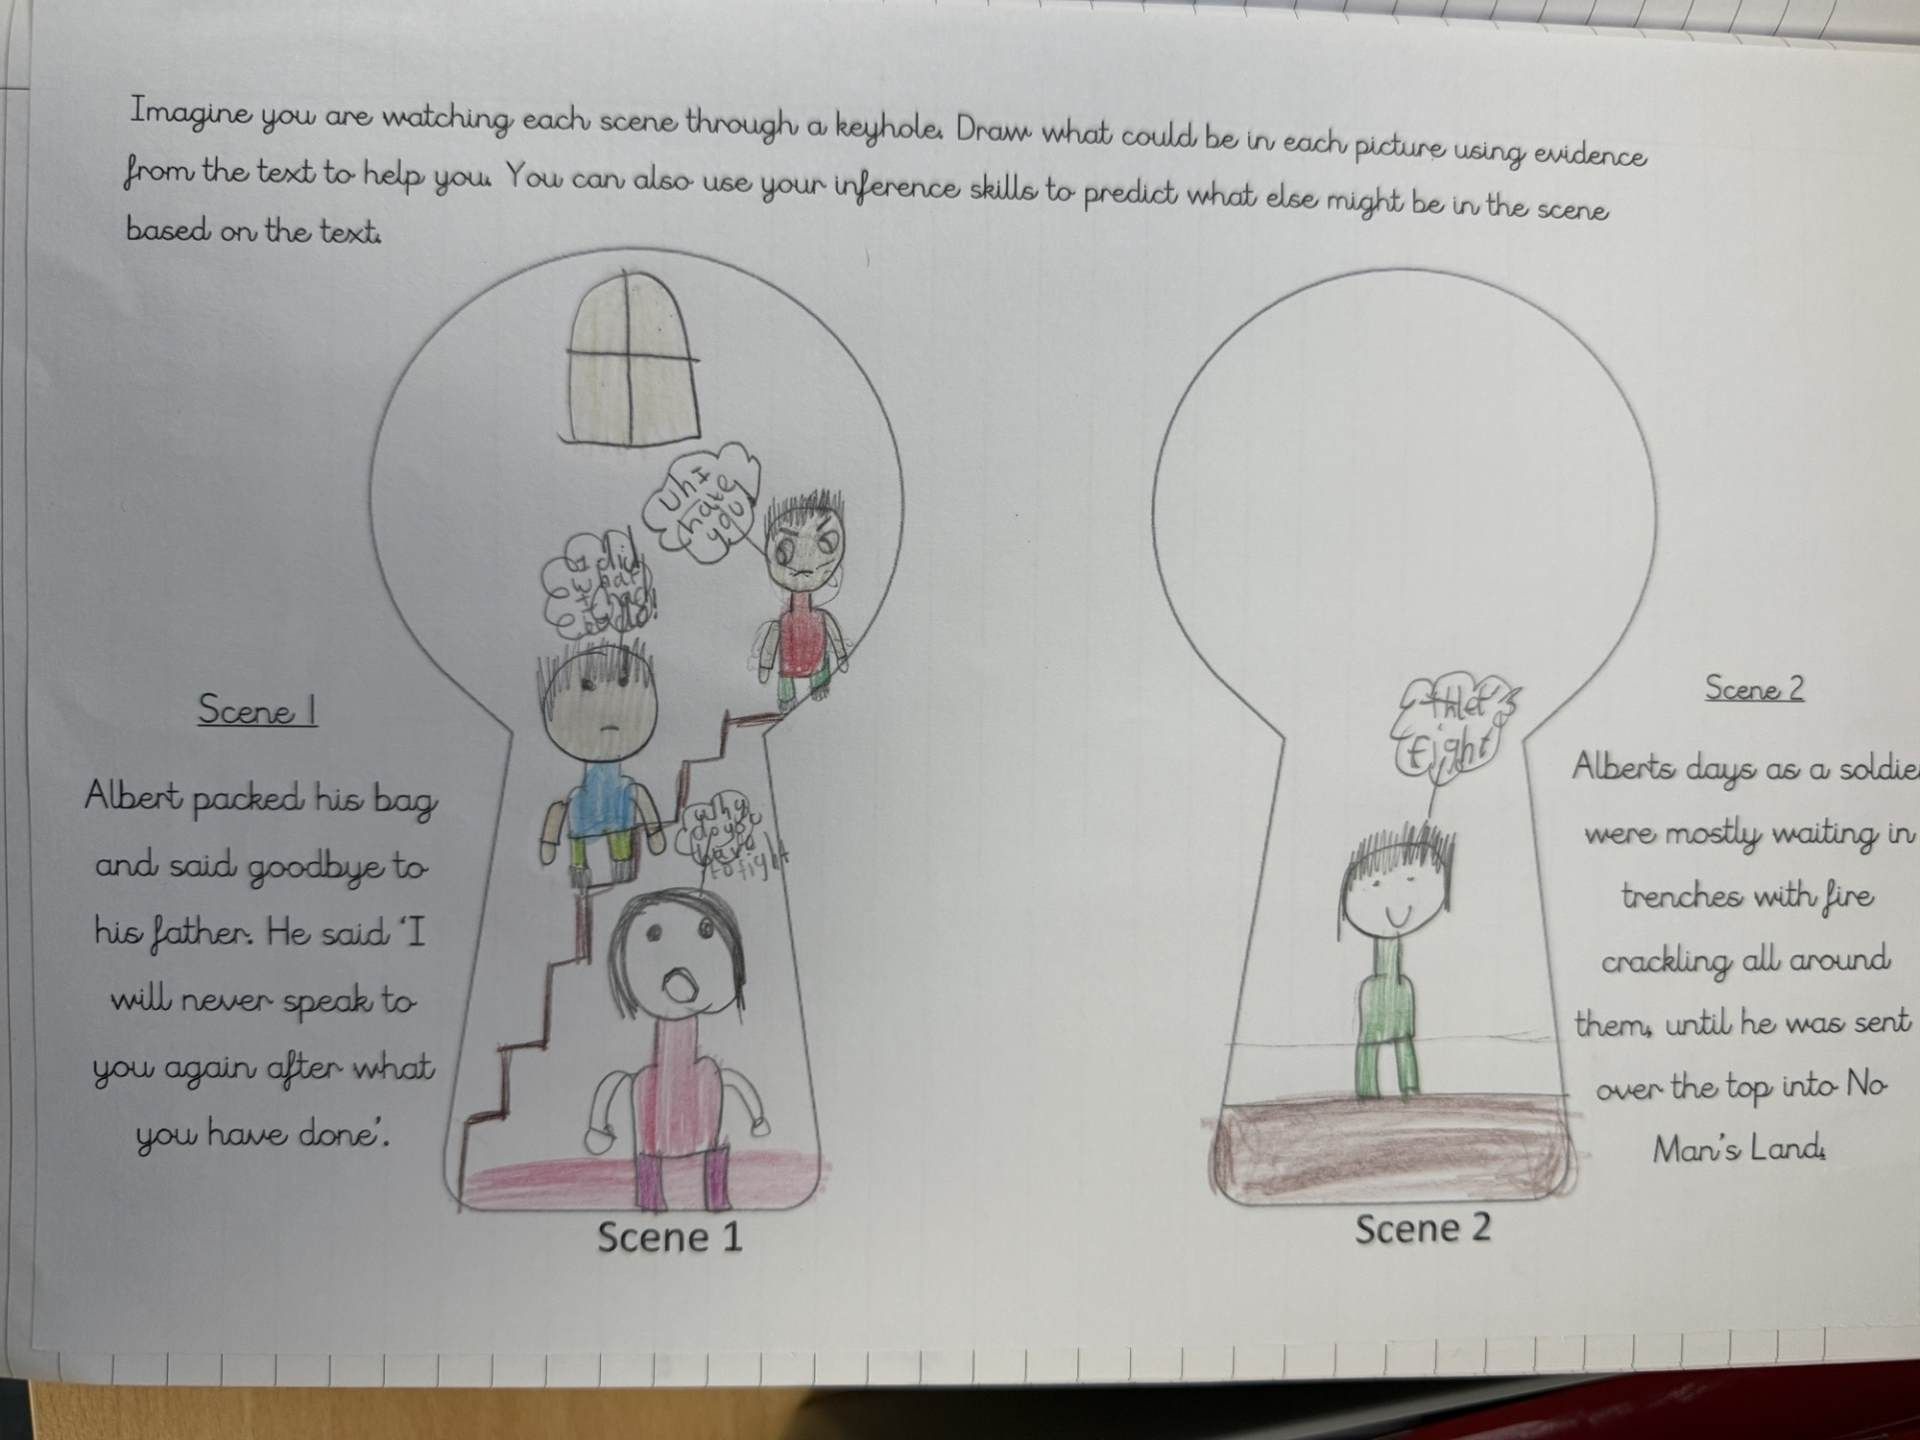 Imagine you are watching each scene through a keyhole. Draw what could be in each picture using evidence
from the text to help you. You can also use your inference skills to predict what else might be in the scene
based on the text.
uh I
hate
you
I did
what
I had
to do!
why
do you
have
to fight
Scene 1
Albert packed his bag
and said goodbye to
his father. He said ‘I
will never speak to
you again after what
you have done’.
Scene 1
let's
fight
Scene 2
Alberts days as a
were mostly waiting in
trenches with fire
crackling all around
them, until he was sent
over the top into No
Man's Land.
Scene 2